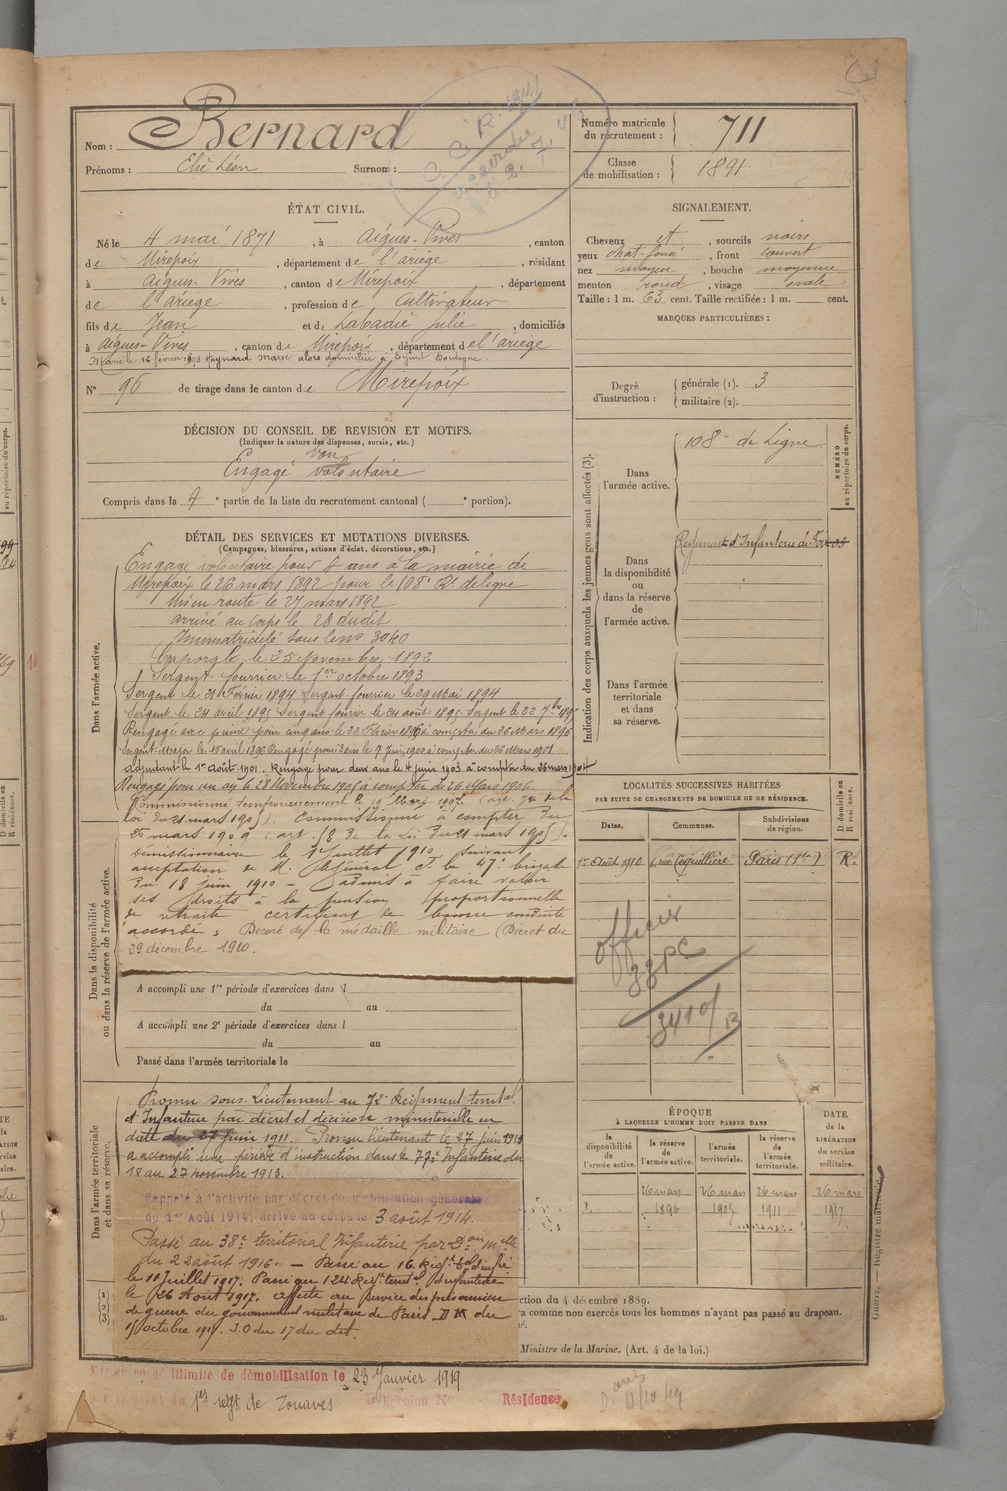 Nom : Bernard
Prénoms : Elie Léon Surnom :
Numéro matricule du recrutement : 711
Classe de mobilisation : 1891
ÉTAT CIVIL.
Né le 4 mai 1871, à Aigues-Vives, canton
de Mirepoix, département de l'ariège, résidant
à Aigues-Vives, canton de Mirepoix, département
de l'ariège, profession de Cultivateur
fils de Jean et de Labadie Julie, domiciliés
à Aigues-Vives, canton de Mirepoix, département de l'ariège
Marié le 16 février 1898 Marie alors domiciliée à
N° 96 de tirage dans le canton de Mirepoix
SIGNALEMENT.
Cheveux et, sourcils noirs
yeux chat-foncé, front couvert
nez moyen, bouche moyenne
menton rond, visage ovale
Taille : 1 m. 63 cent. Taille rectifiée : 1 m. cent.
MARQUES PARTICULIÈRES :
Degré d'instruction : générale (1). 3
militaire (2).
DÉCISION DU CONSEIL DE REVISION ET MOTIFS.
(Indiquer la nature des dispenses, sursis, etc.)
bon
Engagé volontaire
Compris dans la 4e partie de la liste du recrutement cantonal ( e portion).
DÉTAIL DES SERVICES ET MUTATIONS DIVERSES.
(Campagnes, blessures, actions d'éclat, décorations, etc.)
Dans l'armée active.
Engagé volontaire pour 4 ans à la mairie de
Mirepoix le 26 mars 1892 pour le 108e Rt de ligne
Mis en route le 27 mars 1892
arrivé au corps le 28 dudit
Immatriculé sous le no 3040
Caporal le 25 Novembre 1892
Sergent fourrier le 1er octobre 1893
Sergent le 21 Février 1894 Sergent fourrier le 29 Mai 1894
Sergent le 24 avril 1895 Sergent fourrier le 24 août 1895 Sergent le 22 7bre
Rengagé avec prime pour cinq ans le 23 Février 1896 à compter du 26 Mars 1896
Sergent-Major le 15 avril 1896 Rengagé pour 3 ans le 7 Juin 1900 à compter du 26 Mars 1901
Adjudant le 1er Août 1901. Rengagé pour deux ans le 4 juin 1903 à compter du 26 mars 1904
Rengagé pour un an le 28 Novembre 1905 à compter du 26 Mars 1906.
Commissionné temporairement le 19 Mars 1907. (art. 74 de la
loi du 21 mars 1905). Commissionné à compter du
25 mars 1909 (art. 58 de la Loi du 21 mars 1905).
Démissionnaire le 1er Juillet 1910 suivant
acceptation de M. le Général ct la 47e brigade
du 18 juin 1910 — admis à faire valoir
ses droits à la pension proportionnelle
de retraite certificat de bonne conduite
accordé. Décoré de la médaille militaire (Décret du
29 décembre 1910.
Dans la disponibilité ou dans la réserve de l'armée active.
A accompli une 1re période d'exercices dans l
du au
A accompli une 2e période d'exercices dans l
du au
Passé dans l'armée territoriale le
Dans l'armée territoriale et dans sa réserve.
Promu sous-Lieutenant au 72e Régiment territal
d'Infanterie par décret et décision ministérielle en
date du 27 juin 1911. Promu lieutenant le 27 juin 1913
a accompli une période d'instruction dans le 77e Infanterie du
18 au 27 novembre 1913.
Rappelé à l'activité par décret de mobilisation générale
du 1er Août 1914, arrivé au corps le 3 août 1914.
Passé au 38e territorial Infanterie par Don Mlle
du 22 août 1916. — Passé au 16. Régt tal d'infie
le 11 Juillet 1917. Passé au 124 Régt territl d'infanterie
le 26 Août 1917. affecté au service des prisonniers
de guerre du gouvernement militaire de Paris D M du
15 octobre 1917. J.O du 17 du dit.
Mis en congé illimité de démobilisation le 23 Janvier 1919
1er regt de Zouaves
Résidence
Indication des corps auxquels les jeunes gens sont affectés (3).
Dans l'armée active. 108e de Ligne
Dans la disponibilité ou dans la réserve de l'armée active. Régiment d'Infanterie de Foix
Dans l'armée territoriale et dans sa réserve.
NUMÉRO au répertoire du corps.
LOCALITÉS SUCCESSIVES HABITÉES
PAR SUITE DE CHANGEMENTS DE DOMICILE OU DE RÉSIDENCE.
Dates. Communes. Subdivisions de région. D domicile ou R résidence.
1er Août 1910 6, rue Coquillière Paris (1er) R.
officier
ÉPOQUE
À LAQUELLE L'HOMME DOIT PASSER DANS
la disponibilité de l'armée active. la réserve de l'armée active. l'armée territoriale. la réserve de l'armée territoriale.
DATE de la LIBÉRATION DU service militaire.
26 mars 1896 26 mars 1905 26 mars 1911 26 mars 1917
ction du 4 décembre 1889.
a comme non exercés tous les hommes n'ayant pas passé au drapeau.
Ministre de la Marine. (Art. 4 de la loi.)
Guerre. — Registre matricule.